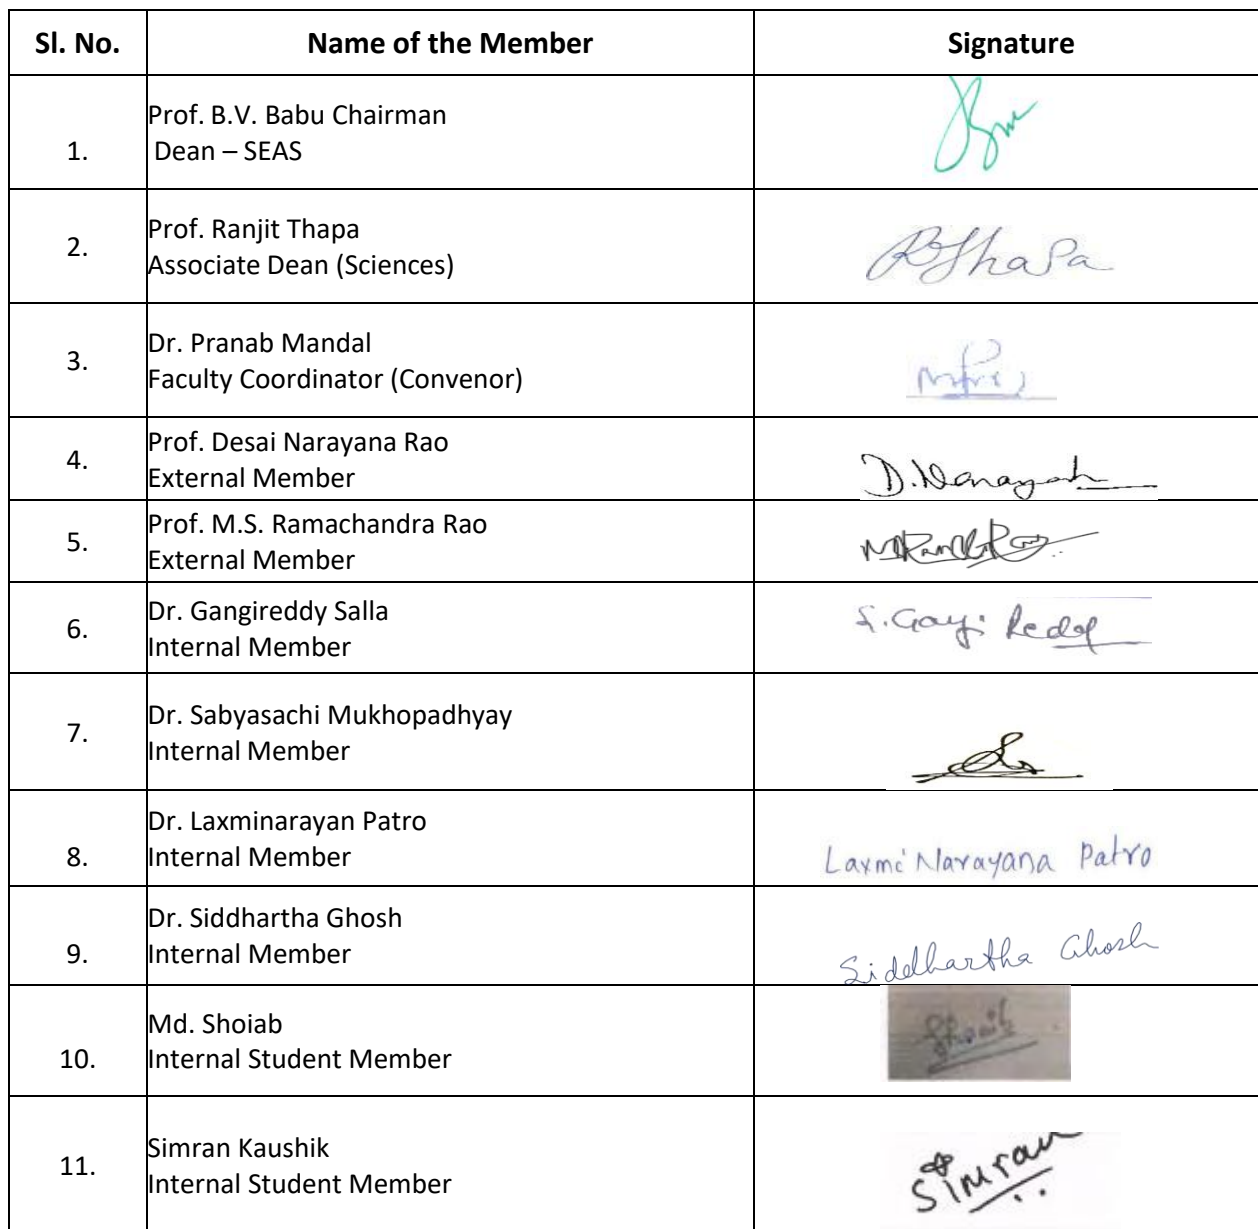 Sl. No. Name of the Member Signature
Prof. B.V. Babu Chairman
1. Dean – SEAS
Prof. Ranjit Thapa
2.
Associate Dean (Sciences)
Dr. Pranab Mandal
3.
Faculty Coordinator (Convenor)
Prof. Desai Narayana Rao
4.
External Member D.Narayan
Prof. M.S. Ramachandra Rao
5.
External Member
Dr. Gangireddy Salla
6. S.Gangi Reddy
Internal Member
Dr. Sabyasachi Mukhopadhyay
7.
Internal Member
Dr. Laxminarayan Patro
8. Internal Member Laxmi Narayana Patro
Dr. Siddhartha Ghosh
9. Internal Member Siddhartha Ghosh
Md. Shoiab Shoaib
10. Internal Student Member
Simran Kaushik
11. Simran
Internal Student Member